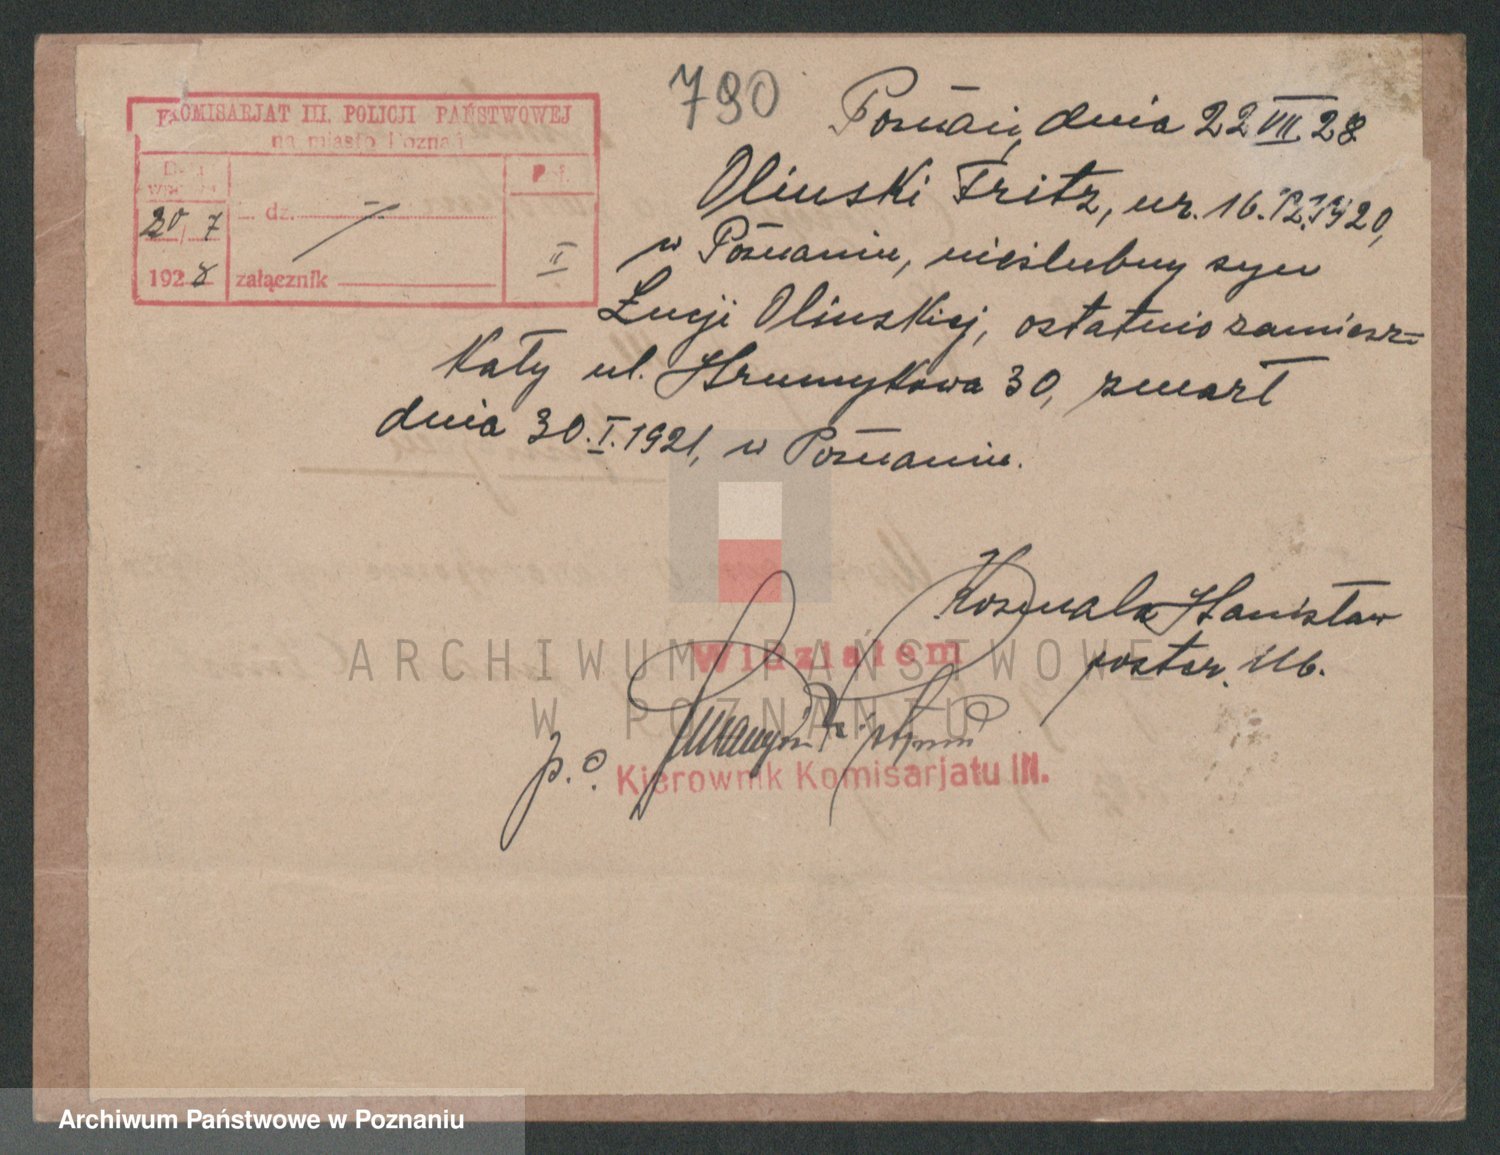 790
KOMISARJAT III. POLICJI PAŃSTWOWEJ
na miasto Poznań
20/7
1928
L. dz.
załącznik
II
Poznań, dnia 22 VII 28
Olinski Fritz, ur. 16.12.1920,
w Poznaniu, nieślubny syn
Łucji Olinskiej, ostatnio zamiesz=
kały ul. Strumykowa 30, zmarł
dnia 30.I.1921, w Poznaniu.
Kosmala Stanisław
poster. 
Widziałem
p. o.
Kierownik Komisarjatu III.
ARCHIWUM PAŃSTWOWE
W POZNANIU
Archiwum Państwowe w Poznaniu